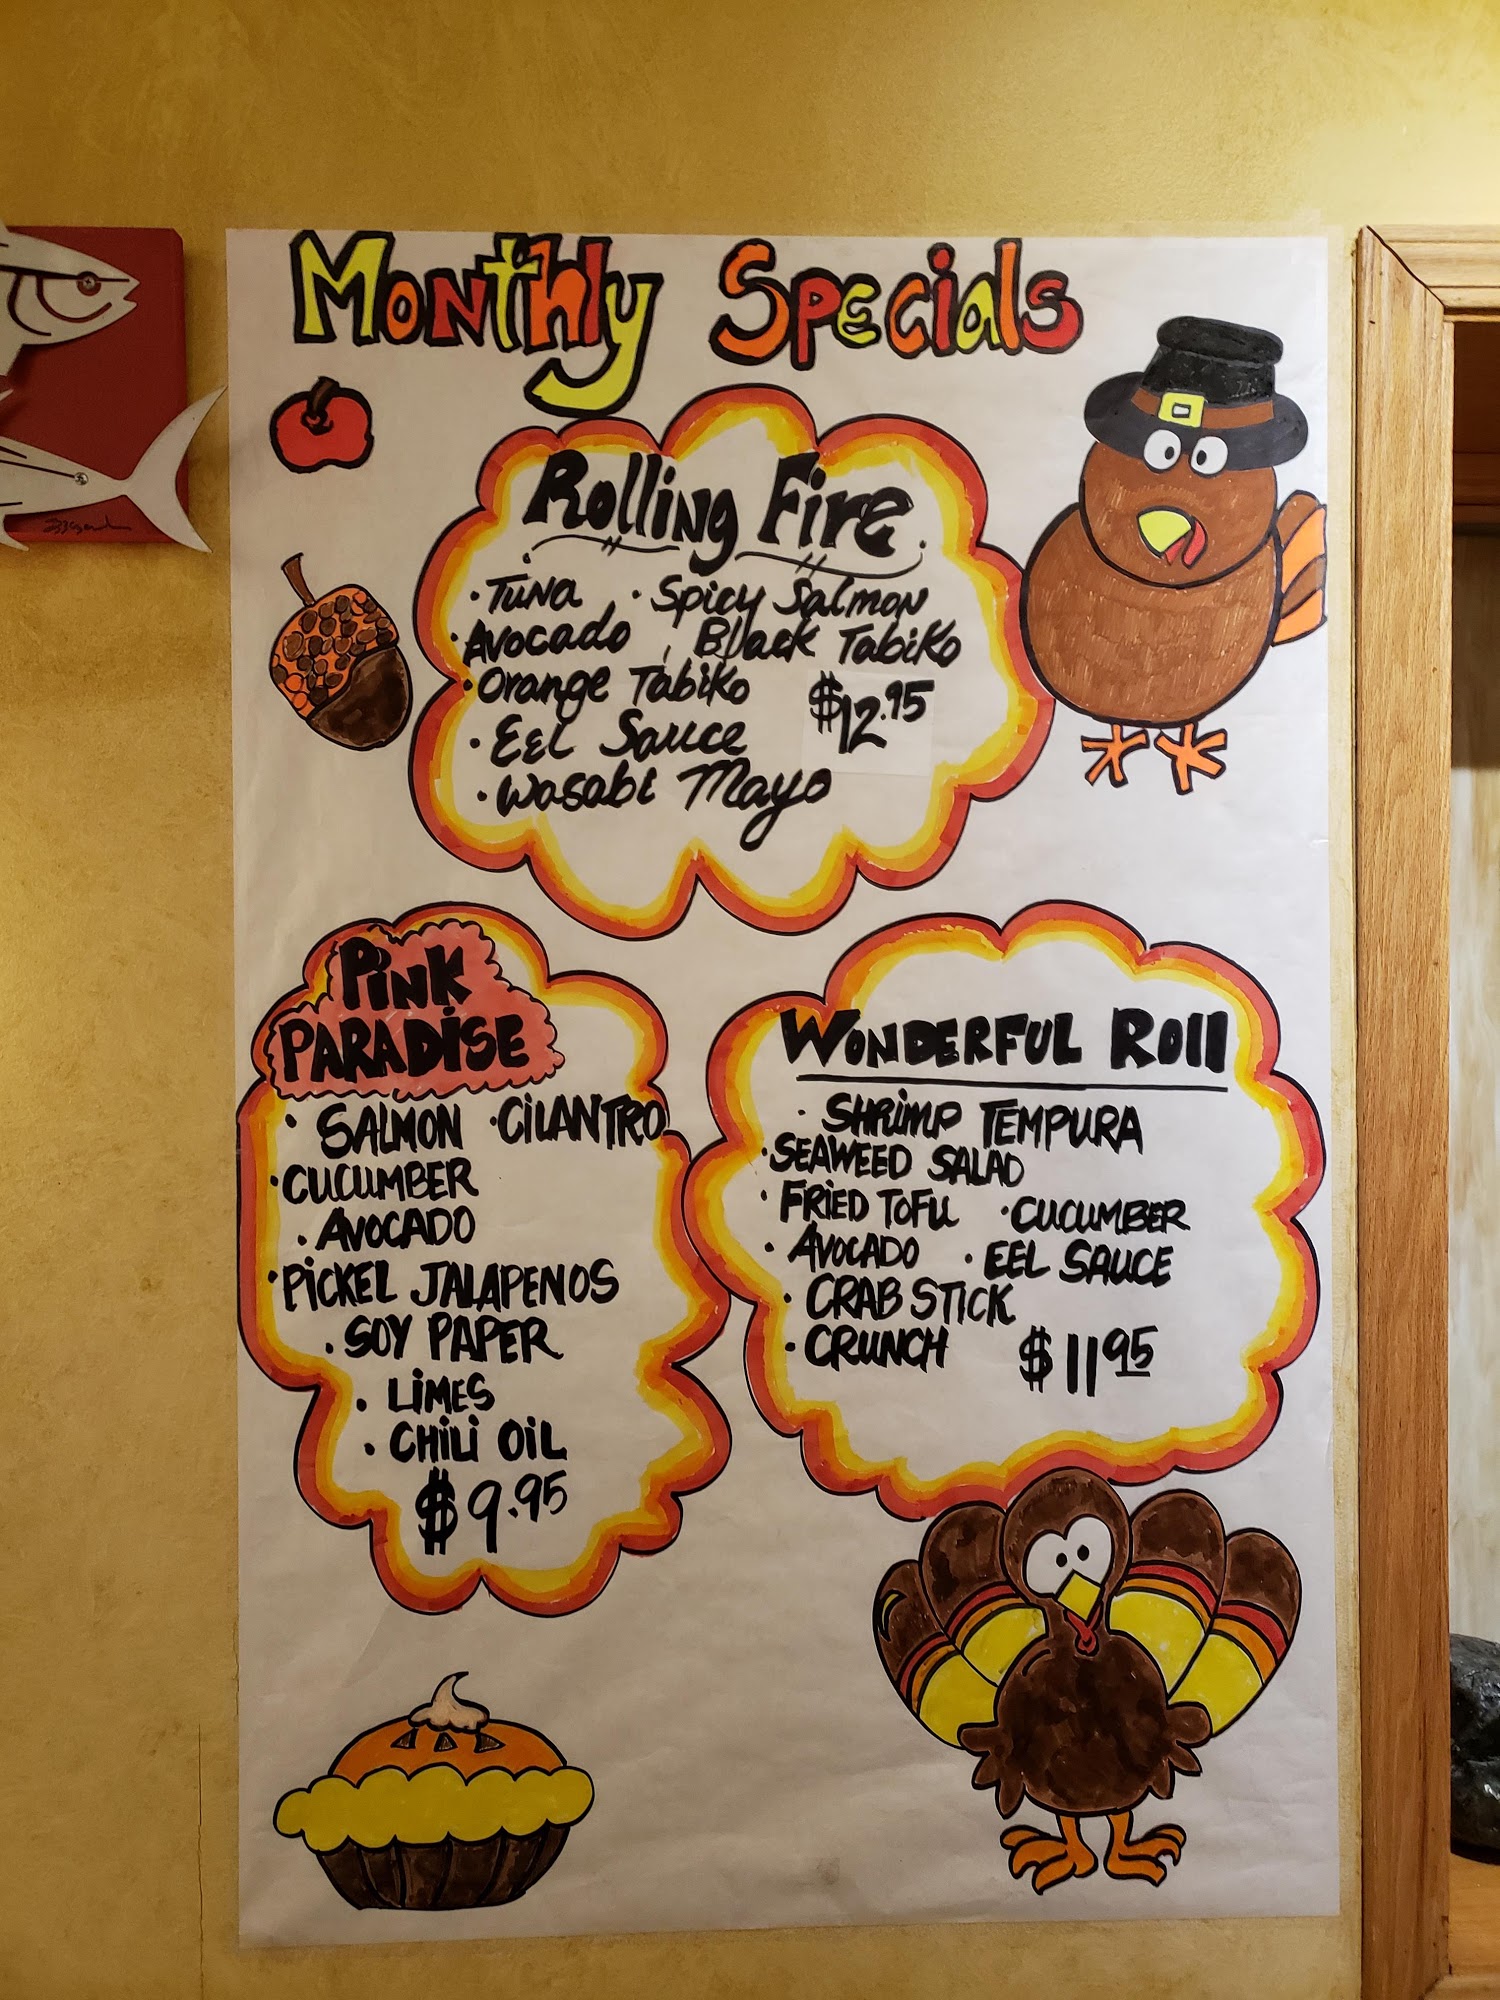 Monthly Specials
Rolling Fire
· Tuna · Spicy Salmon
· Avocado · Black Tabiko
· Orange Tabiko $12.95
· Eel Sauce
· Wasabi Mayo
Pink
PARADiSE
· SALMON · CiLANTRO
· CUCUMBER
· AVOCADO
· PiCKEL JALAPENOS
· SOY PAPER
· LiMES
· CHiLi OiL
$9.95
WONDERFUL ROll
· SHRiMP TEMPURA
· SEAWEED SALAD
· FRiED TOFU · CUCUMBER
· AVOCADO · EEL SAUCE
· CRAB STICK
· CRUNCH $1195